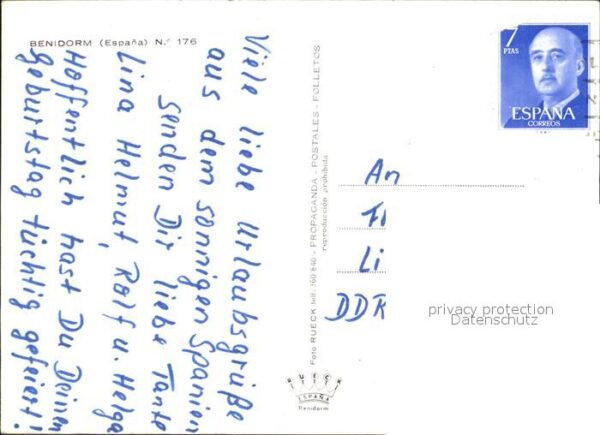 BENIDORM (España) N.º 176
Viele liebe Urlaubsgrüße
aus dem sonnigen Spanien
senden Dir liebe Tante
Lina Helmut, Rolf u. Helga
Hoffentlich hast Du Deinen
Geburtstag tüchtig gefeiert!
Foto RUECK telf. 360 840 - PROPAGANDA - POSTALES - FOLLETOS
reproducción prohibida
7
PTAS
ESPAÑA
CORREOS
An
Fl
Li
DDR
privacy protection
Datenschutz
RUECK
ESPAÑA
Benidorm